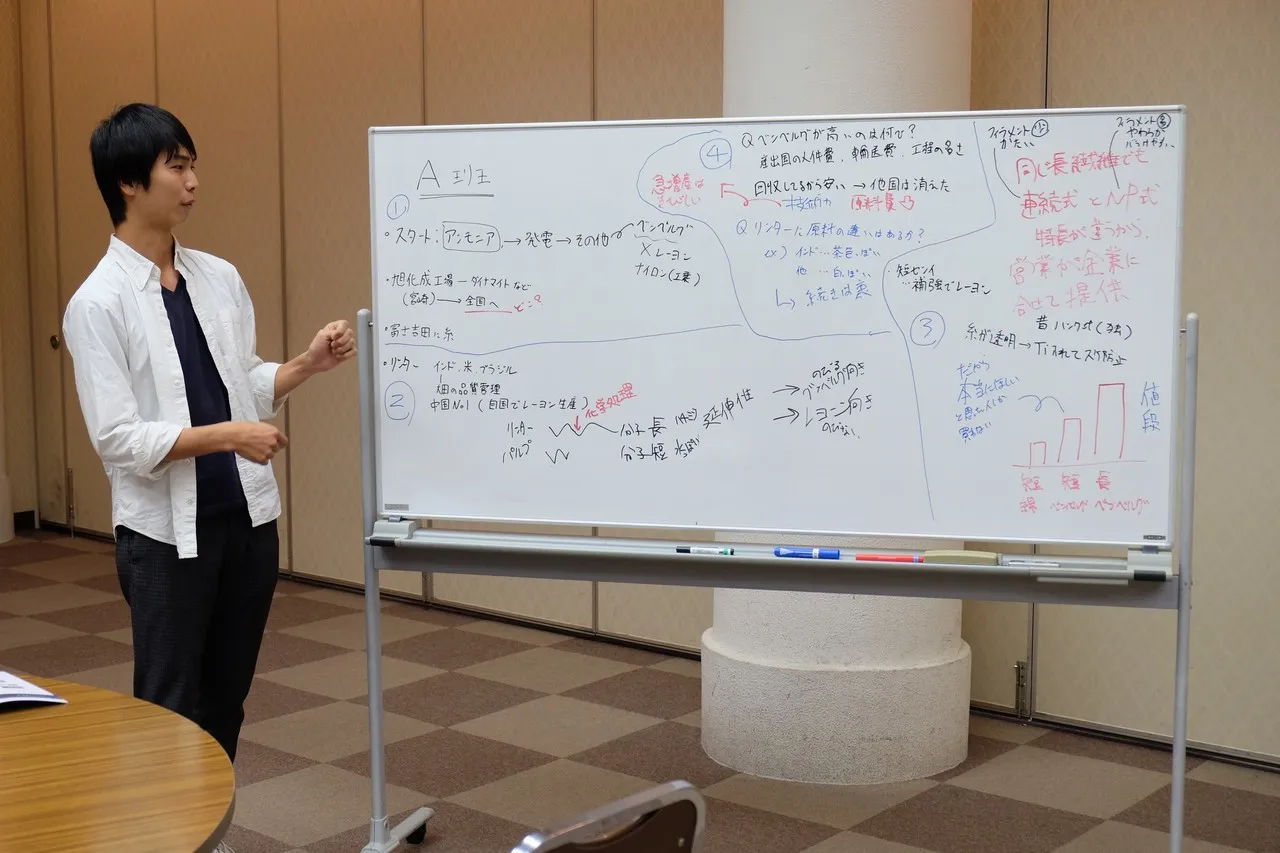 A班
①
・スタート:アンモニア→発電→その他
ベンベルグ
×レーヨン
ナイロン(工業)
・旭化成工場ーダイナマイトなど
(宮崎)→全国へ どこ?
・富士吉田に糸
②
・リンター インド、米、ブラジル
畑の品質管理
中国No1(自国でレーヨン生産)
化学処理
リンター 分子長 延伸性
パルプ 分子短
→のびる ベンベルグ向き
→レーヨン向き
のびない
④
Qベンベルグが高いのは何で?
産出国の人件費、輸送費、工程の多さ
回収してるから安い→他国は消えた
技術力 原料費
急増産は
きびしい
Qリンターに原料の違いはあるか?
ex)インド…茶色っぽい
他…白っぽい
続きは裏
フィラメント少
かたい
フィラメント多
やわらか
同じ長繊維でも
連続式とNP式
特長が違うから、
営業が企業に
合せて提供
・短センイ
…補強でレーヨン
③
昔ハンク式(独)
糸が透明→Ti入れてスケ防止
だから
本当にほしい
と思う人しか
買わない
値段
短 短 長
綿 ベンベルグ ベンベルグ